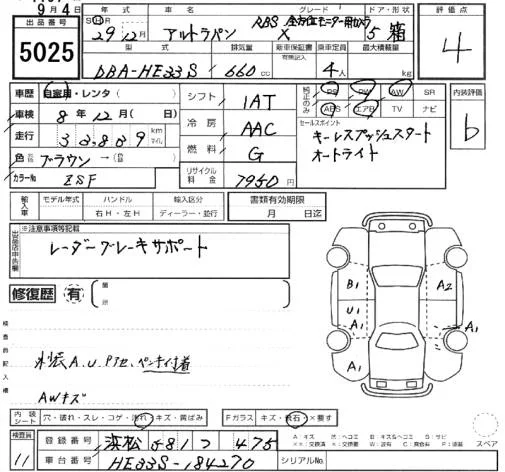 9月4日
出品番号
5025
年式 車名 グレード ドア・形状
S H 29年12月 アルトラパン RBS 全方位モニター用カメラ X 5 箱
型式 排気量 新車保証書 有無記入 乗車定員 最大積載量
DBA-HE33S 660cc 4人 kg
評価点
4
車歴 自家用・レンタ( )
車検 8年12月(日)
走行 33,809 km マイル
色 元色 ブラウン→( 色)
カラーNo ZSF
シフト 1AT
冷房 AAC
燃料 G
リサイクル料金 7950円
純正のみ PS PW AW SR
ABS エアB TV ナビ
内装評価
b
セールスポイント
キーレスプッシュスタート
オートライト
輸入車 モデル年式 ハンドル 右H・左H 輸入区分 ディーラー・並行
書類有効期限
月 日迄
出品店申告欄
※注意事項等記載
レーダーブレーキサポート
修復歴 有 箇所
検査員記入欄
A.U.Pアセ.ペンキ付着
AWキズ
B1 A2
U1
A1 A1
A1 A1
内装シート 穴・破れ・スレ・コゲ・汚れ・キズ・黄ばみ Fガラス キズ・飛石・×要す
A キズ U ヘコミ B キズ&ヘコミ S サビ
スペア
検査員 11
登録番号 浜松 581 つ 475
車台番号 HE33S-184270 シリアルNo.